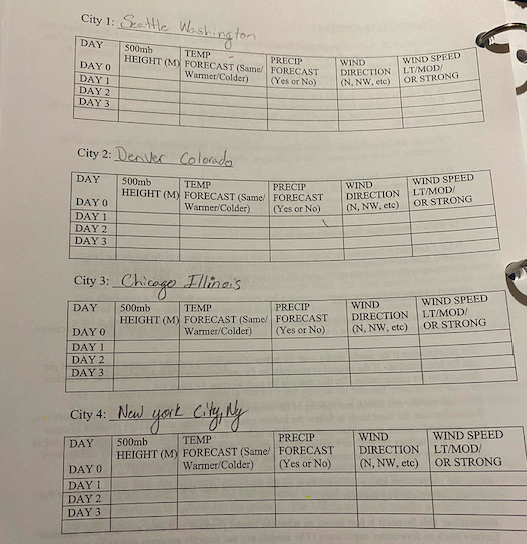 City 1: Seattle Washington
DAY 500mb TEMP PRECIP WIND WIND SPEED
HEIGHT (M) FORECAST (Same/ FORECAST DIRECTION LT/MOD/
DAY 0 Warmer/Colder) (Yes or No) (N, NW, etc) OR STRONG
DAY 1
DAY 2
DAY 3
City 2: Denver Colorado
DAY 500mb TEMP PRECIP WIND WIND SPEED
HEIGHT (M) FORECAST (Same/ FORECAST DIRECTION LT/MOD/
DAY 0 Warmer/Colder) (Yes or No) (N, NW, etc) OR STRONG
DAY 1
DAY 2
DAY 3
City 3: Chicago Illinois
DAY 500mb TEMP PRECIP WIND WIND SPEED
HEIGHT (M) FORECAST (Same/ FORECAST DIRECTION LT/MOD/
DAY 0 Warmer/Colder) (Yes or No) (N, NW, etc) OR STRONG
DAY 1
DAY 2
DAY 3
City 4: New york City, Ny
DAY 500mb TEMP PRECIP WIND WIND SPEED
HEIGHT (M) FORECAST (Same/ FORECAST DIRECTION LT/MOD/
DAY 0 Warmer/Colder) (Yes or No) (N, NW, etc) OR STRONG
DAY 1
DAY 2
DAY 3